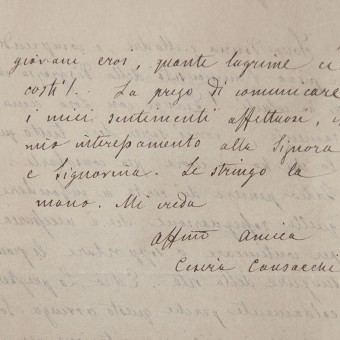 giovani eroi, quante lagrime ci
costi!.. La prego di comunicare
i miei sentimenti affettuosi,
mio interessamento alla Signora
e Signorina. Le stringo la
mano. Mi creda
Affma Amica